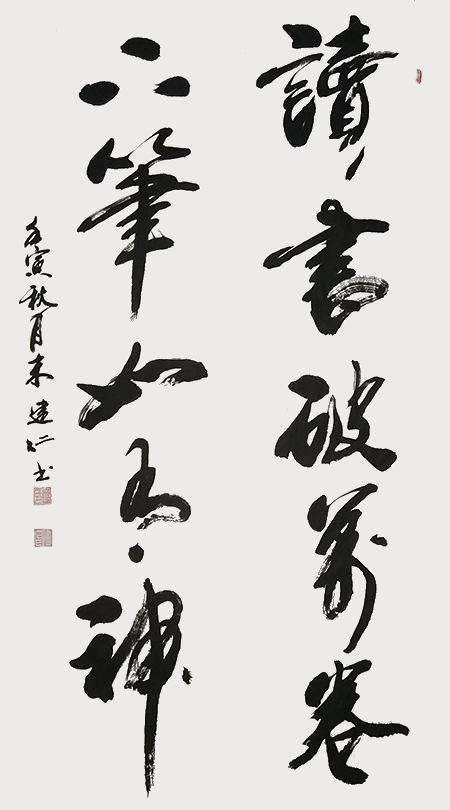 讀書破萬卷
下筆如有神
壬寅秋月宋建仁書